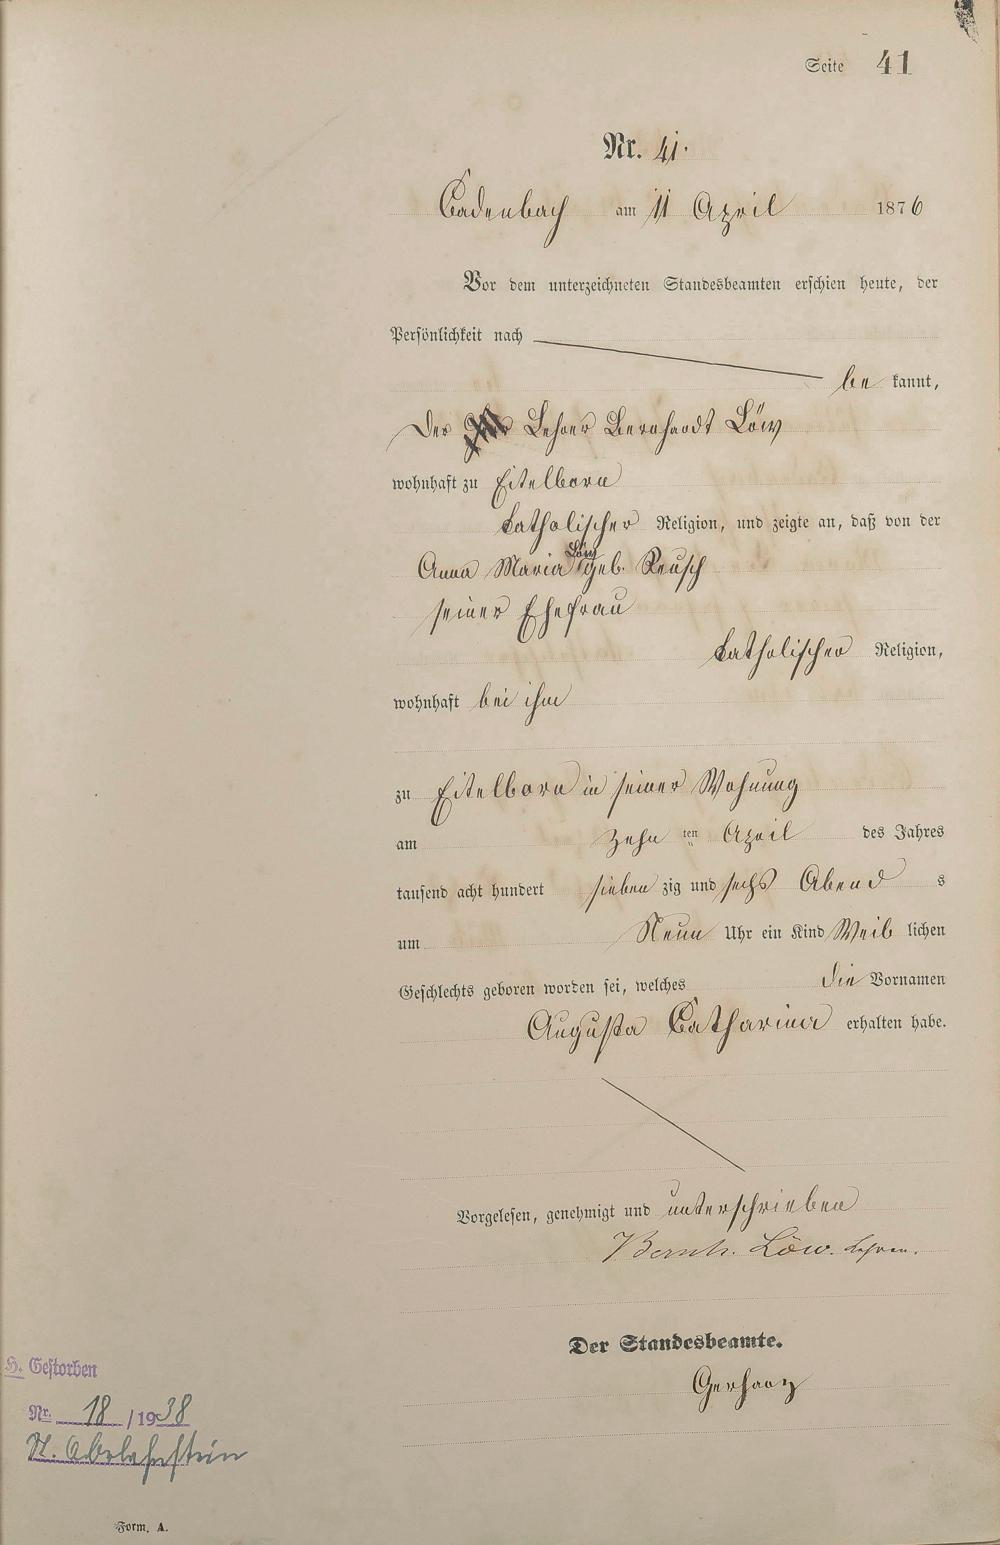 Seite 41
Nr. 41.
Cadenbach am 11 April 1876
Vor dem unterzeichneten Standesbeamten erschien heute, der
Persönlichkeit nach
be kannt,
Der Lehrer Bernhardt Löw
wohnhaft zu Eitelborn
katholischer Religion, und zeigte an, daß von der
Löw
Anna Maria geb. Reusch
seiner Ehefrau
katholischer Religion,
wohnhaft bei ihm
zu Eitelborn in seiner Wohnung
am zehn ten April des Jahres
tausend acht hundert sieben zig und sechs Abend s
um Neun Uhr ein Kind Weib lichen
Geschlechts geboren worden sei, welches die Vornamen
Augusta Catharina erhalten habe.
Vorgelesen, genehmigt und unterschrieben
Bernh. Löw. Lehrer.
Der Standesbeamte.
Gerharz
H. Gestorben
Nr. 18 /1938
St. Oberlahnstein
Form. A.